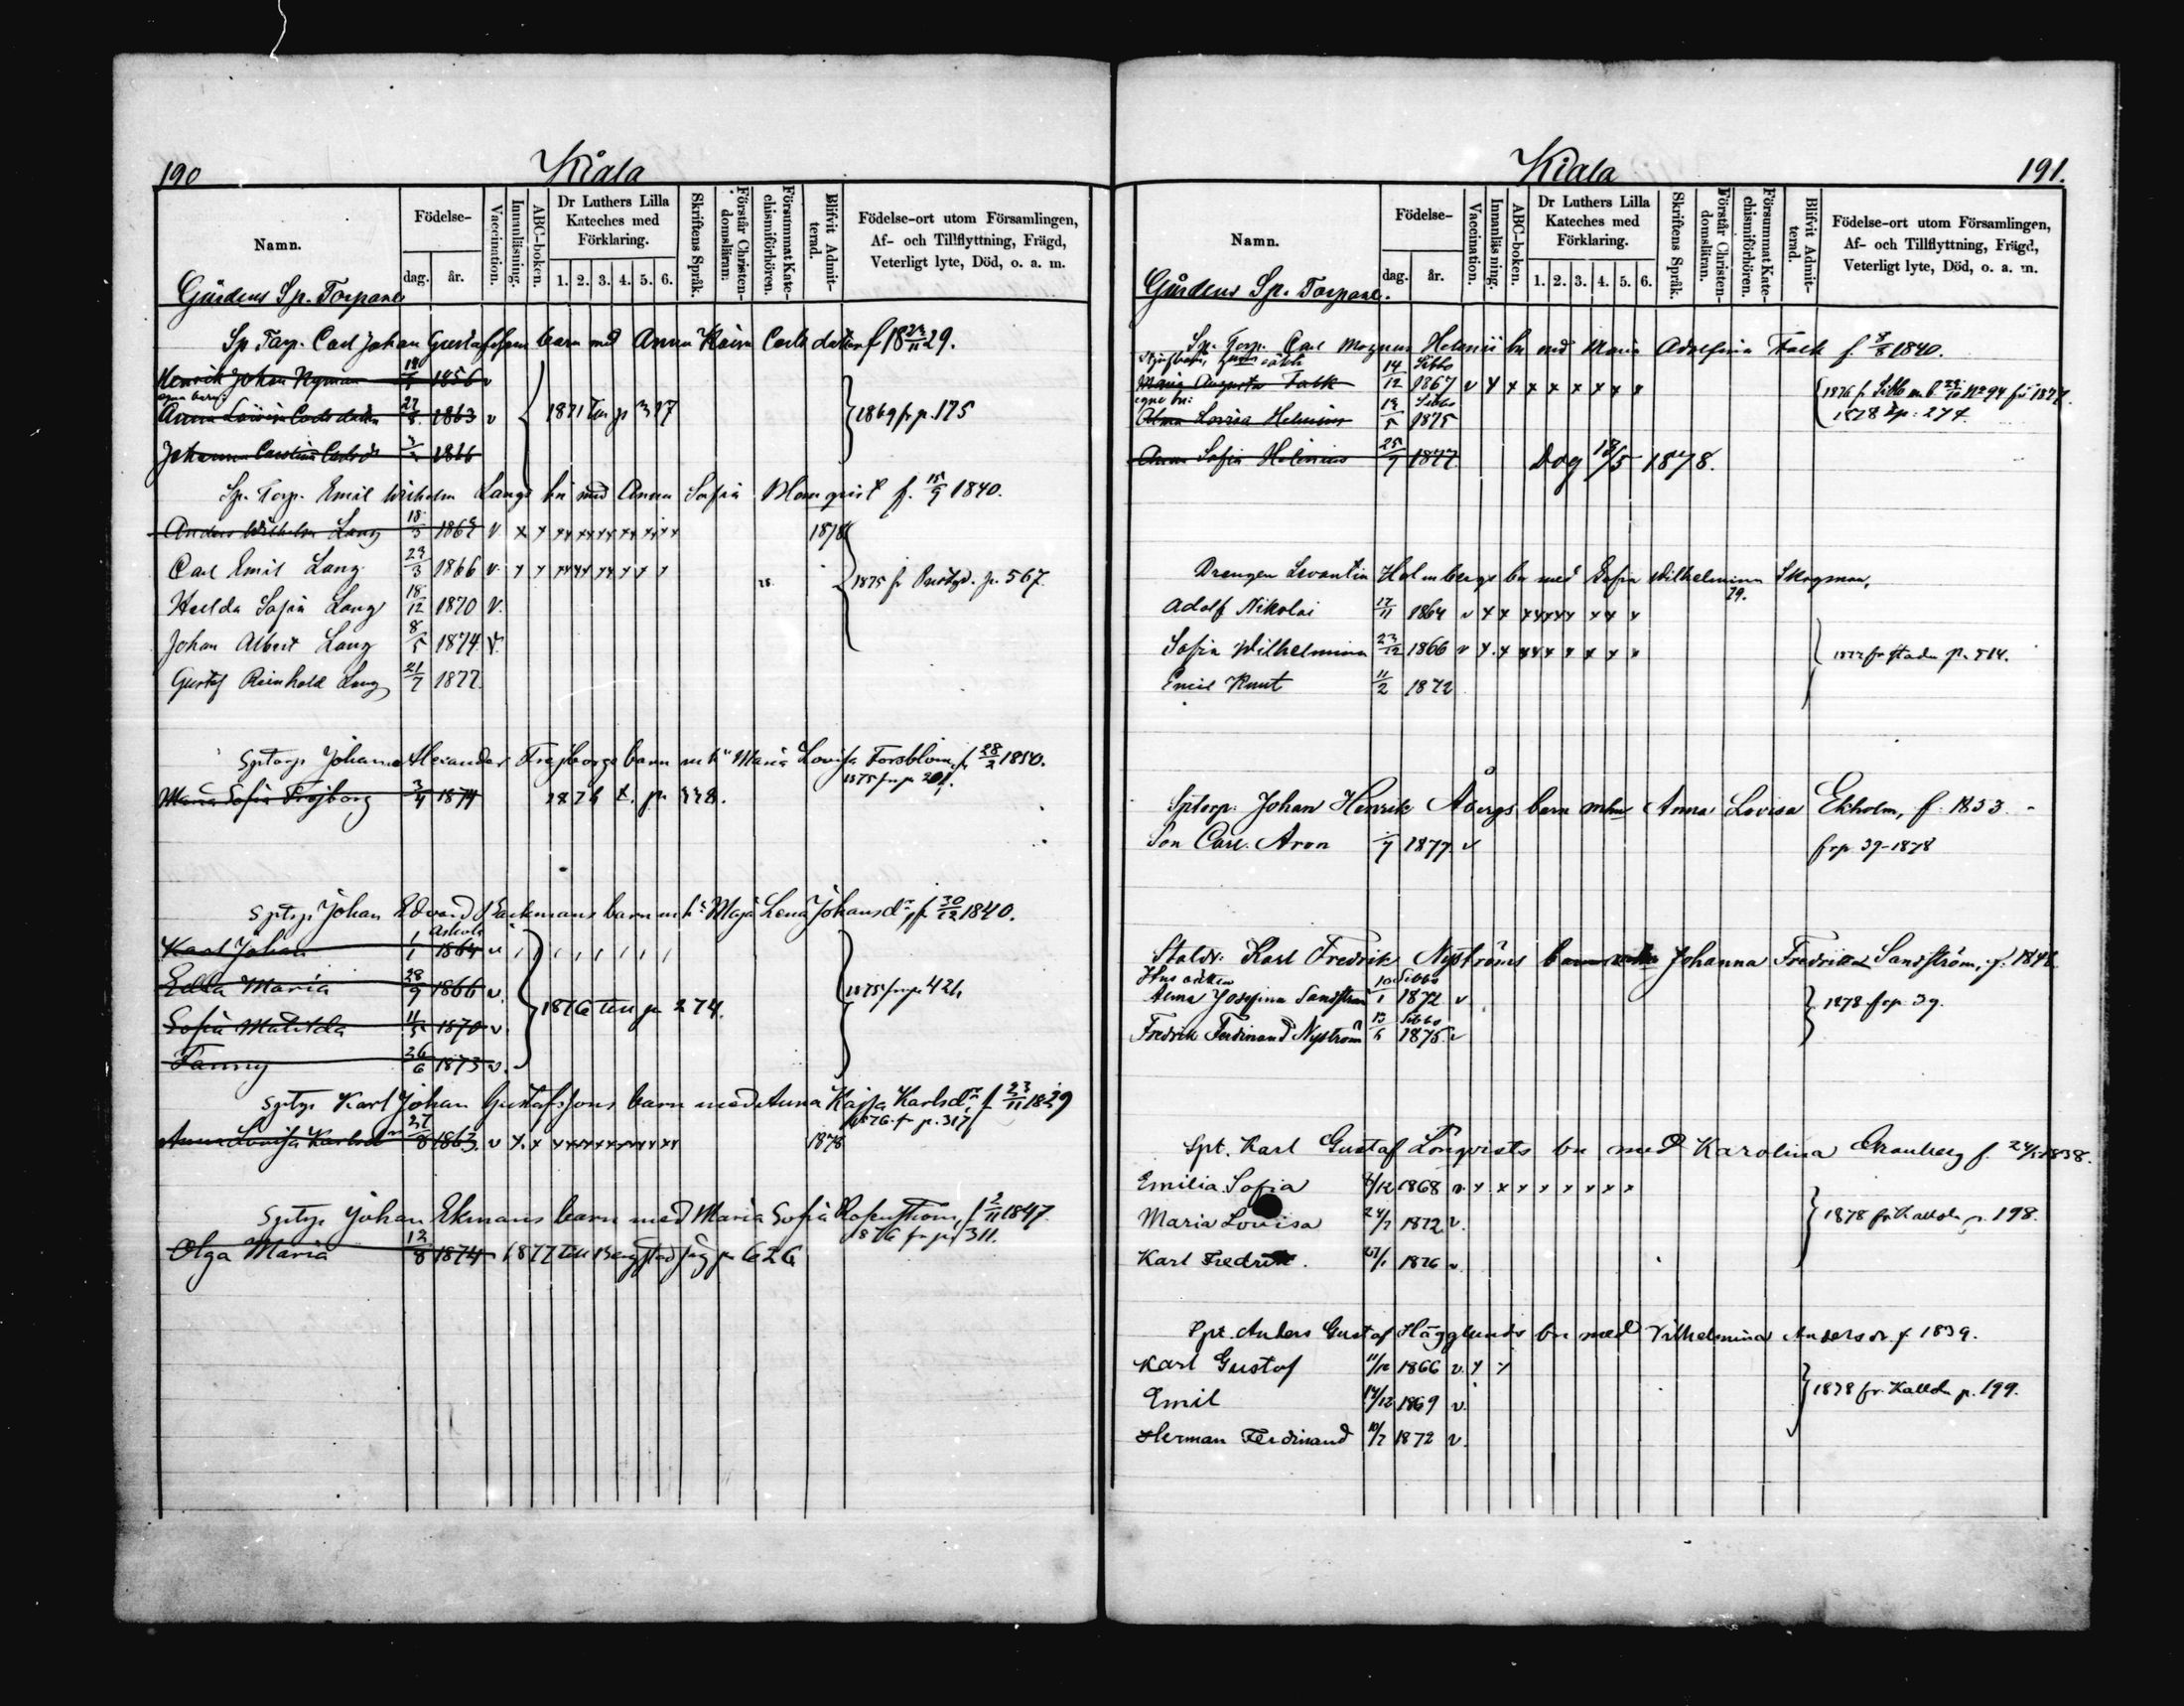 190
Kiala
Namn.
Födelse-
dag.
år.
Vaccination.
Innanläsning.
ABC-boken.
Dr Luthers Lilla Kateches med Förklaring.
1. 2. 3. 4. 5. 6.
Skriftens Språk.
Förstår Christen-domsläran.
Försummat Kate-chismiförhören.
Blifvit Admit-terad.
Födelse-ort utom Församlingen,
Af- och Tillflyttning, Frägd,
Veterligt lyte, Död, o. a. m.
Gårdens Sp. Torpare
Sp. Torp. Carl Johan Gustafssons barn med Anna Kaisa Carlsdotter f 18 23/11 29.
Henrik Johan Nyman 1856 v
egna barn:
Anna Lovisa Carlsdotter 27/8 1863 v 1871 till p 317 1869 fr p. 175
Johanna Carolina Carlsd 1866
Sp. Torp. Emil Wilhelm Langs bn med Anna Sofia Blomqvist f. 15/9 1840.
Anders Wilhelm Lang 18/5 1862 v. x x xx xx xx xx xx xx 1878
Carl Emil Lang 29/3 1866 v. x x 1875 fr p. 567.
Hulda Sofia Lang 18/12 1870 v.
Johan Albert Lang 8/5 1874 v.
Gustaf Reinhold Lang 21/7 1877.
Sptorp Johan Alexander Frejborgs barn m h Maria Lovisa Forsblom, f 28/2 1850.
1875 fr p 201.
Maria Sofia Frejborg 3/4 1874 1876 t. p.
Sptp Johan Edvard barn m h: Maja Lena Johansdr, f 30/12 1840.
Askola
Karl Johan 1/1 1864 v
Edla Maria 28/9 1866 v. 1875 fr p 424
Sofia Matilda 1870 v. 1876 till p 274.
Fanny 26/6 1873 v.
Sptp Karl Johan Gustafssons barn med Anna Kajsa Karlsdr, f 23/11 1829
1876 fr p. 317
Anna Lovisa Karlsdr 27/8 1863. v x. x xx xx xx xx xx xx 1878
Sptp Johan Ekmans barn med Maria Sofia Rosenström, f 2/11 1847.
1876 fr p 311.
Olga Maria 12/8 1874 1877 till p 626
Kiala
191.
Namn.
Födelse-
dag.
år.
Vaccination.
Innanläsning.
ABC-boken.
Dr Luthers Lilla Kateches med Förklaring.
1. 2. 3. 4. 5. 6.
Skriftens Språk.
Förstår Christen-domsläran.
Försummat Kate-chismiförhören.
Blifvit Admit-terad.
Födelse-ort utom Församlingen,
Af- och Tillflyttning, Frägd,
Veterligt lyte, Död, o. a. m.
Gårdens Sp. Torpare.
Sp. Torp. Carl Magnus Helenii bn med Maria Adolfina Falk f. 8/8 1840.
Sibbo
Maria Augusta Falk 14/12 1867 v x x x x x x x x 1876 fr Sibbo
egne bn: Sibbo
Alma Lovisa Helenius 19/5 1875 1878 t p. 274.
Anna Sofia Helenius 25/9 1877 Dog 18/5 1878.
Drengen Levantin Holmbergs bn med Sofia Wilhelmina Skogman,
79.
Adolf Nikolai 17/11 1864 v x x xxxxx x x x
Sofia Wilhelmina 23/12 1866 v x. x xx x x x x x 1877 fr staden p. 514.
Emil Knut 11/2 1872
Sptorp. Johan Henrik Åbergs barn mhu Anna Lovisa Ekholm, f. 1853.
Son Carl Aron /7 1877. v fr p. 39-1878
Staldr. Karl Fredrik Nyströms barn Johanna Fredrika Sandström, f. 1848
Sibbo
Alma Josefina Sandström 10/1 1872 v 1878 fr p. 39.
Sibbo
Fredrik Ferdinand Nyström 13/6 1875. v
Spt. Karl Gustaf Lönqvists bn med Karolina Granberg f. 24/5 1838.
Emilia Sofia 1868 v. x x x x x x x x
Maria Lovisa 24/7 1872 v. 1878 fr Kallola p. 198.
Karl Fredrik. 27/1 1876 v.
Spt. Anders Gustaf Hägglunds bn med Vilhelmina Andersdr. f 1839.
Karl Gustaf 11/12 1866 v. x x
Emil 14/12 1869 v. 1878 fr. Kallola p. 199.
Herman Ferdinand 10/7 1872 v.